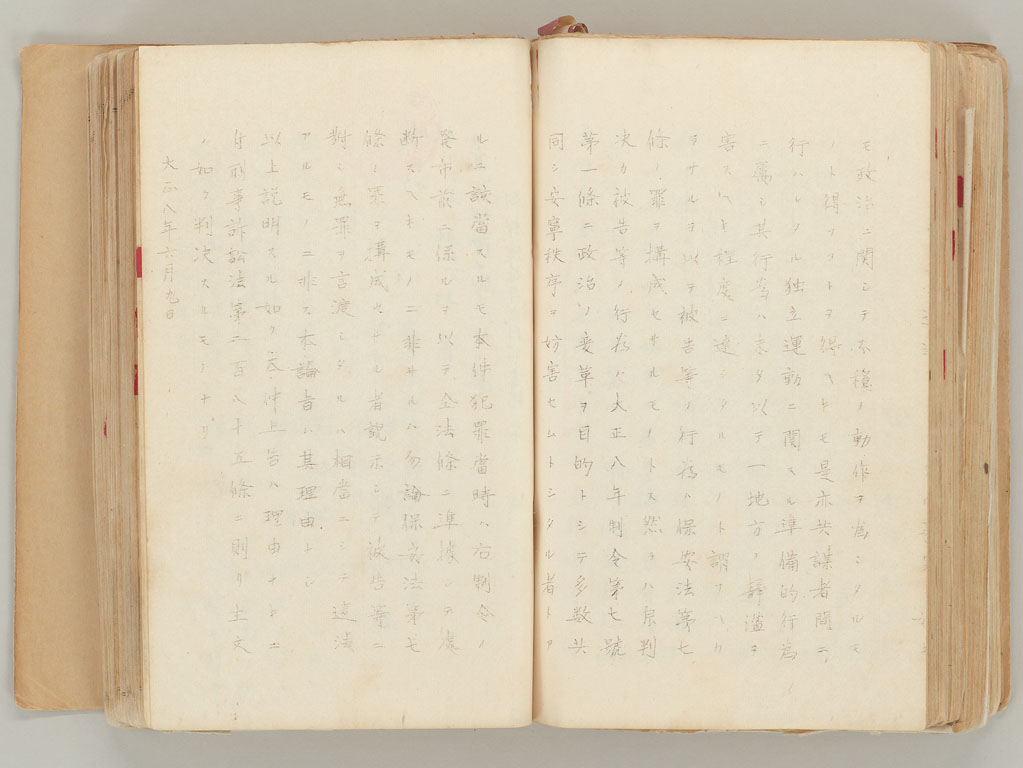 モ政治ニ関シテ不穏ノ動作ヲ為シタルモ
ノト得フコトヲ得ヘキモ是亦共謀者間ニ
行ハレタル独立運動ニ関スル準備的行為
ニ属シ其行為ハ未タ以テ一地方ノ静謐ヲ
害スヘキ程度ニ達シタルモノト謂フヘカ
ラサルヲ以テ被告等ノ行為ハ保安法第七
條ノ罪ヲ構成セサルモノトス然ラハ原判
決カ被告等ノ行為ハ大正八年制令第七號
第一條ニ政治ノ変革ヲ目的トシテ多数共
同シ安寧秩序ヲ妨害セムトシタル者トア
ルニ該當スルモ本件犯罪當時ハ右制令ノ
發布前ニ係ルヲ以テ仝法條ニ準據シテ處
断スヘキモノニ非サルハ勿論保安法第七
條ノ罪ヲ構成セサル者説示シテ被告等ニ
對シ無罪ヲ言渡シタルハ相當ニシテ違法
アルモノニ非ス本論旨ハ其理由ナシ
以上説明スル如ク本件上告ハ理由ナキニ
付刑事訴訟法第二百八十五條ニ則リ主文
ノ如ク判决スルモノナリ
大正八年六月九日